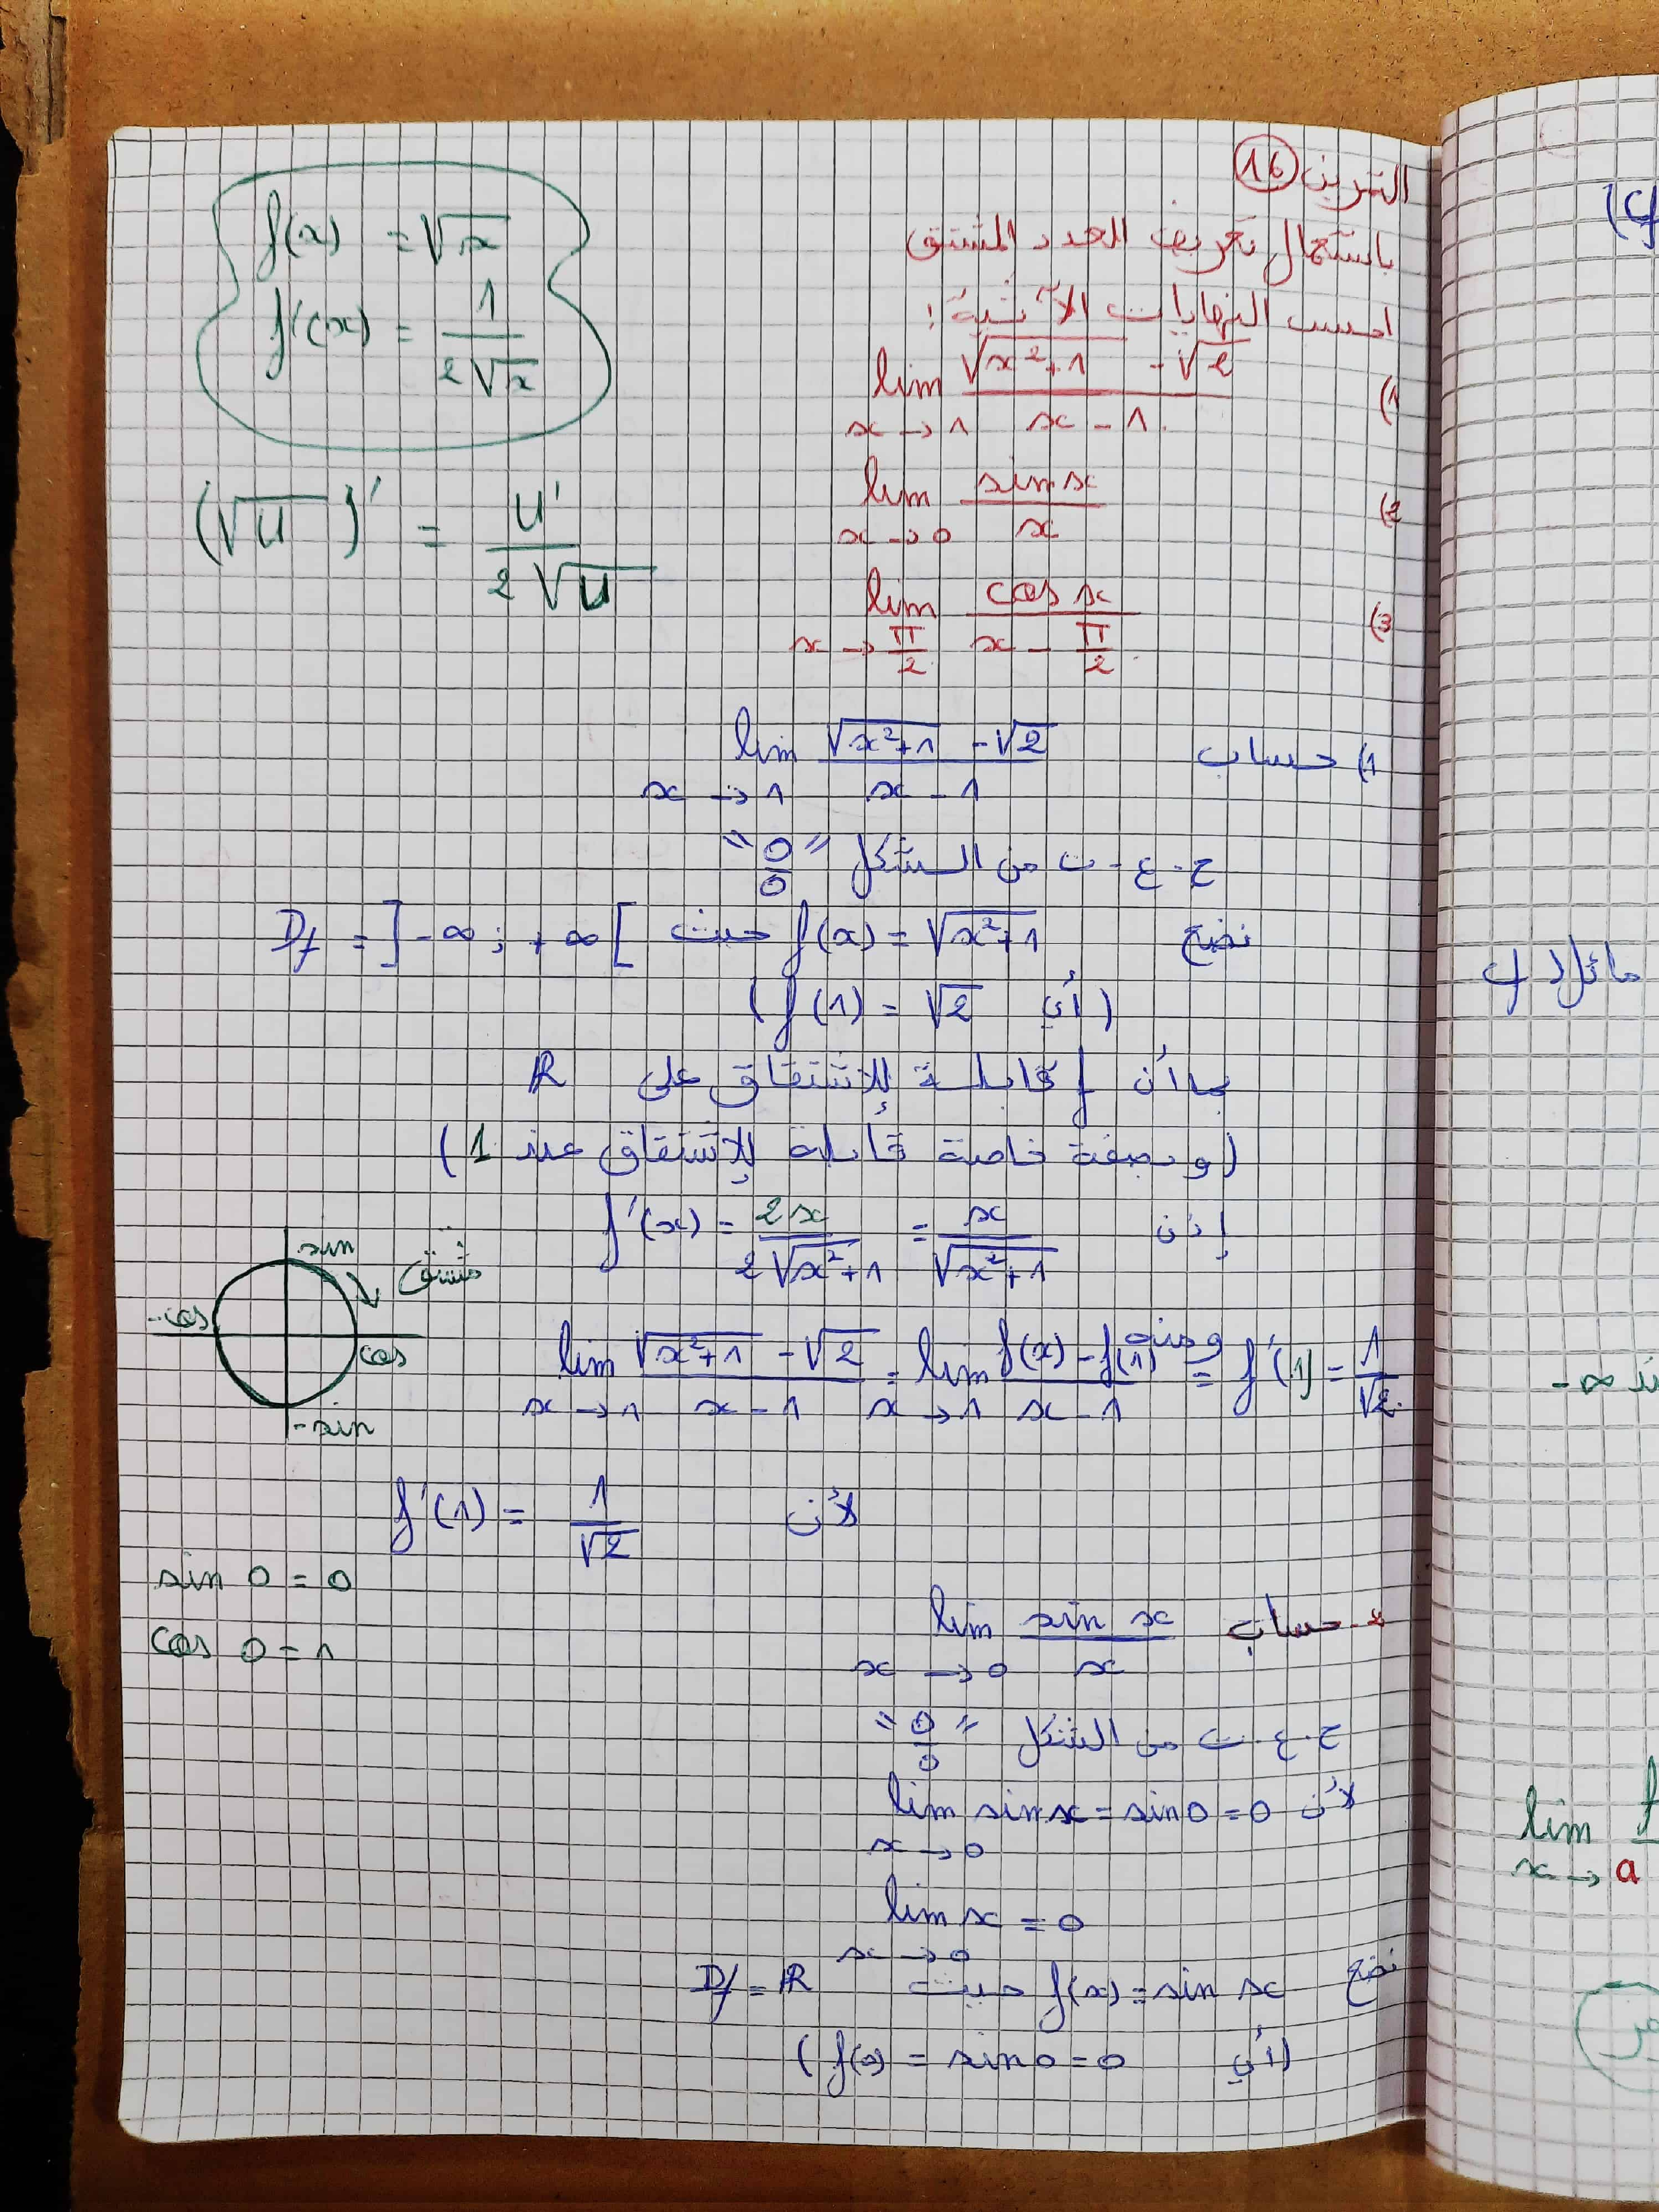 التمرين 16
باستعمال تعريف العدد المشتق
احسب النهايات الآتية:
1) lim x→1 (√(x²+1) - √2)/(x - 1)
2) lim x→0 sin x / x
3) lim x→π/2 cos x / (x - π/2)
f(x) = √x
f'(x) = 1/(2√x)
(√u)' = u'/(2√u)
1) حساب lim x→1 (√(x²+1) - √2)/(x - 1)
ح.ع.ت من الشكل "0/0"
نضع f(x) = √(x²+1) حيث Df = ]-∞ ; +∞[
(أي f(1) = √2)
بما أن f قابلة للإشتقاق على ℝ
(وبصفة خاصة قابلة للإشتقاق عند 1)
إذن f'(x) = 2x/(2√(x²+1)) = x/√(x²+1)
ومنه
lim x→1 (√(x²+1) - √2)/(x - 1) = lim x→1 (f(x) - f(1))/(x - 1) = f'(1) = 1/√2
لأن f'(1) = 1/√2
sin
مشتق
-cos
cos
-sin
sin 0 = 0
cos 0 = 1
2- حساب lim x→0 sin x / x
ح.ع.ت من الشكل "0/0"
لأن lim x→0 sin x = sin 0 = 0
lim x→0 x = 0
نضع f(x) = sin x حيث Df = ℝ
(أي f(0) = sin 0 = 0)
مائل
-∞
lim x→a